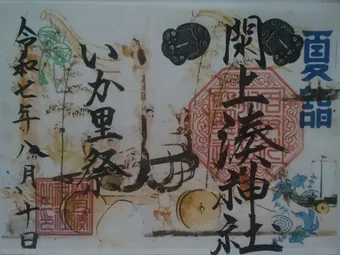 夏詣
閖上湊神社
いか里祭
令和七年八月十日